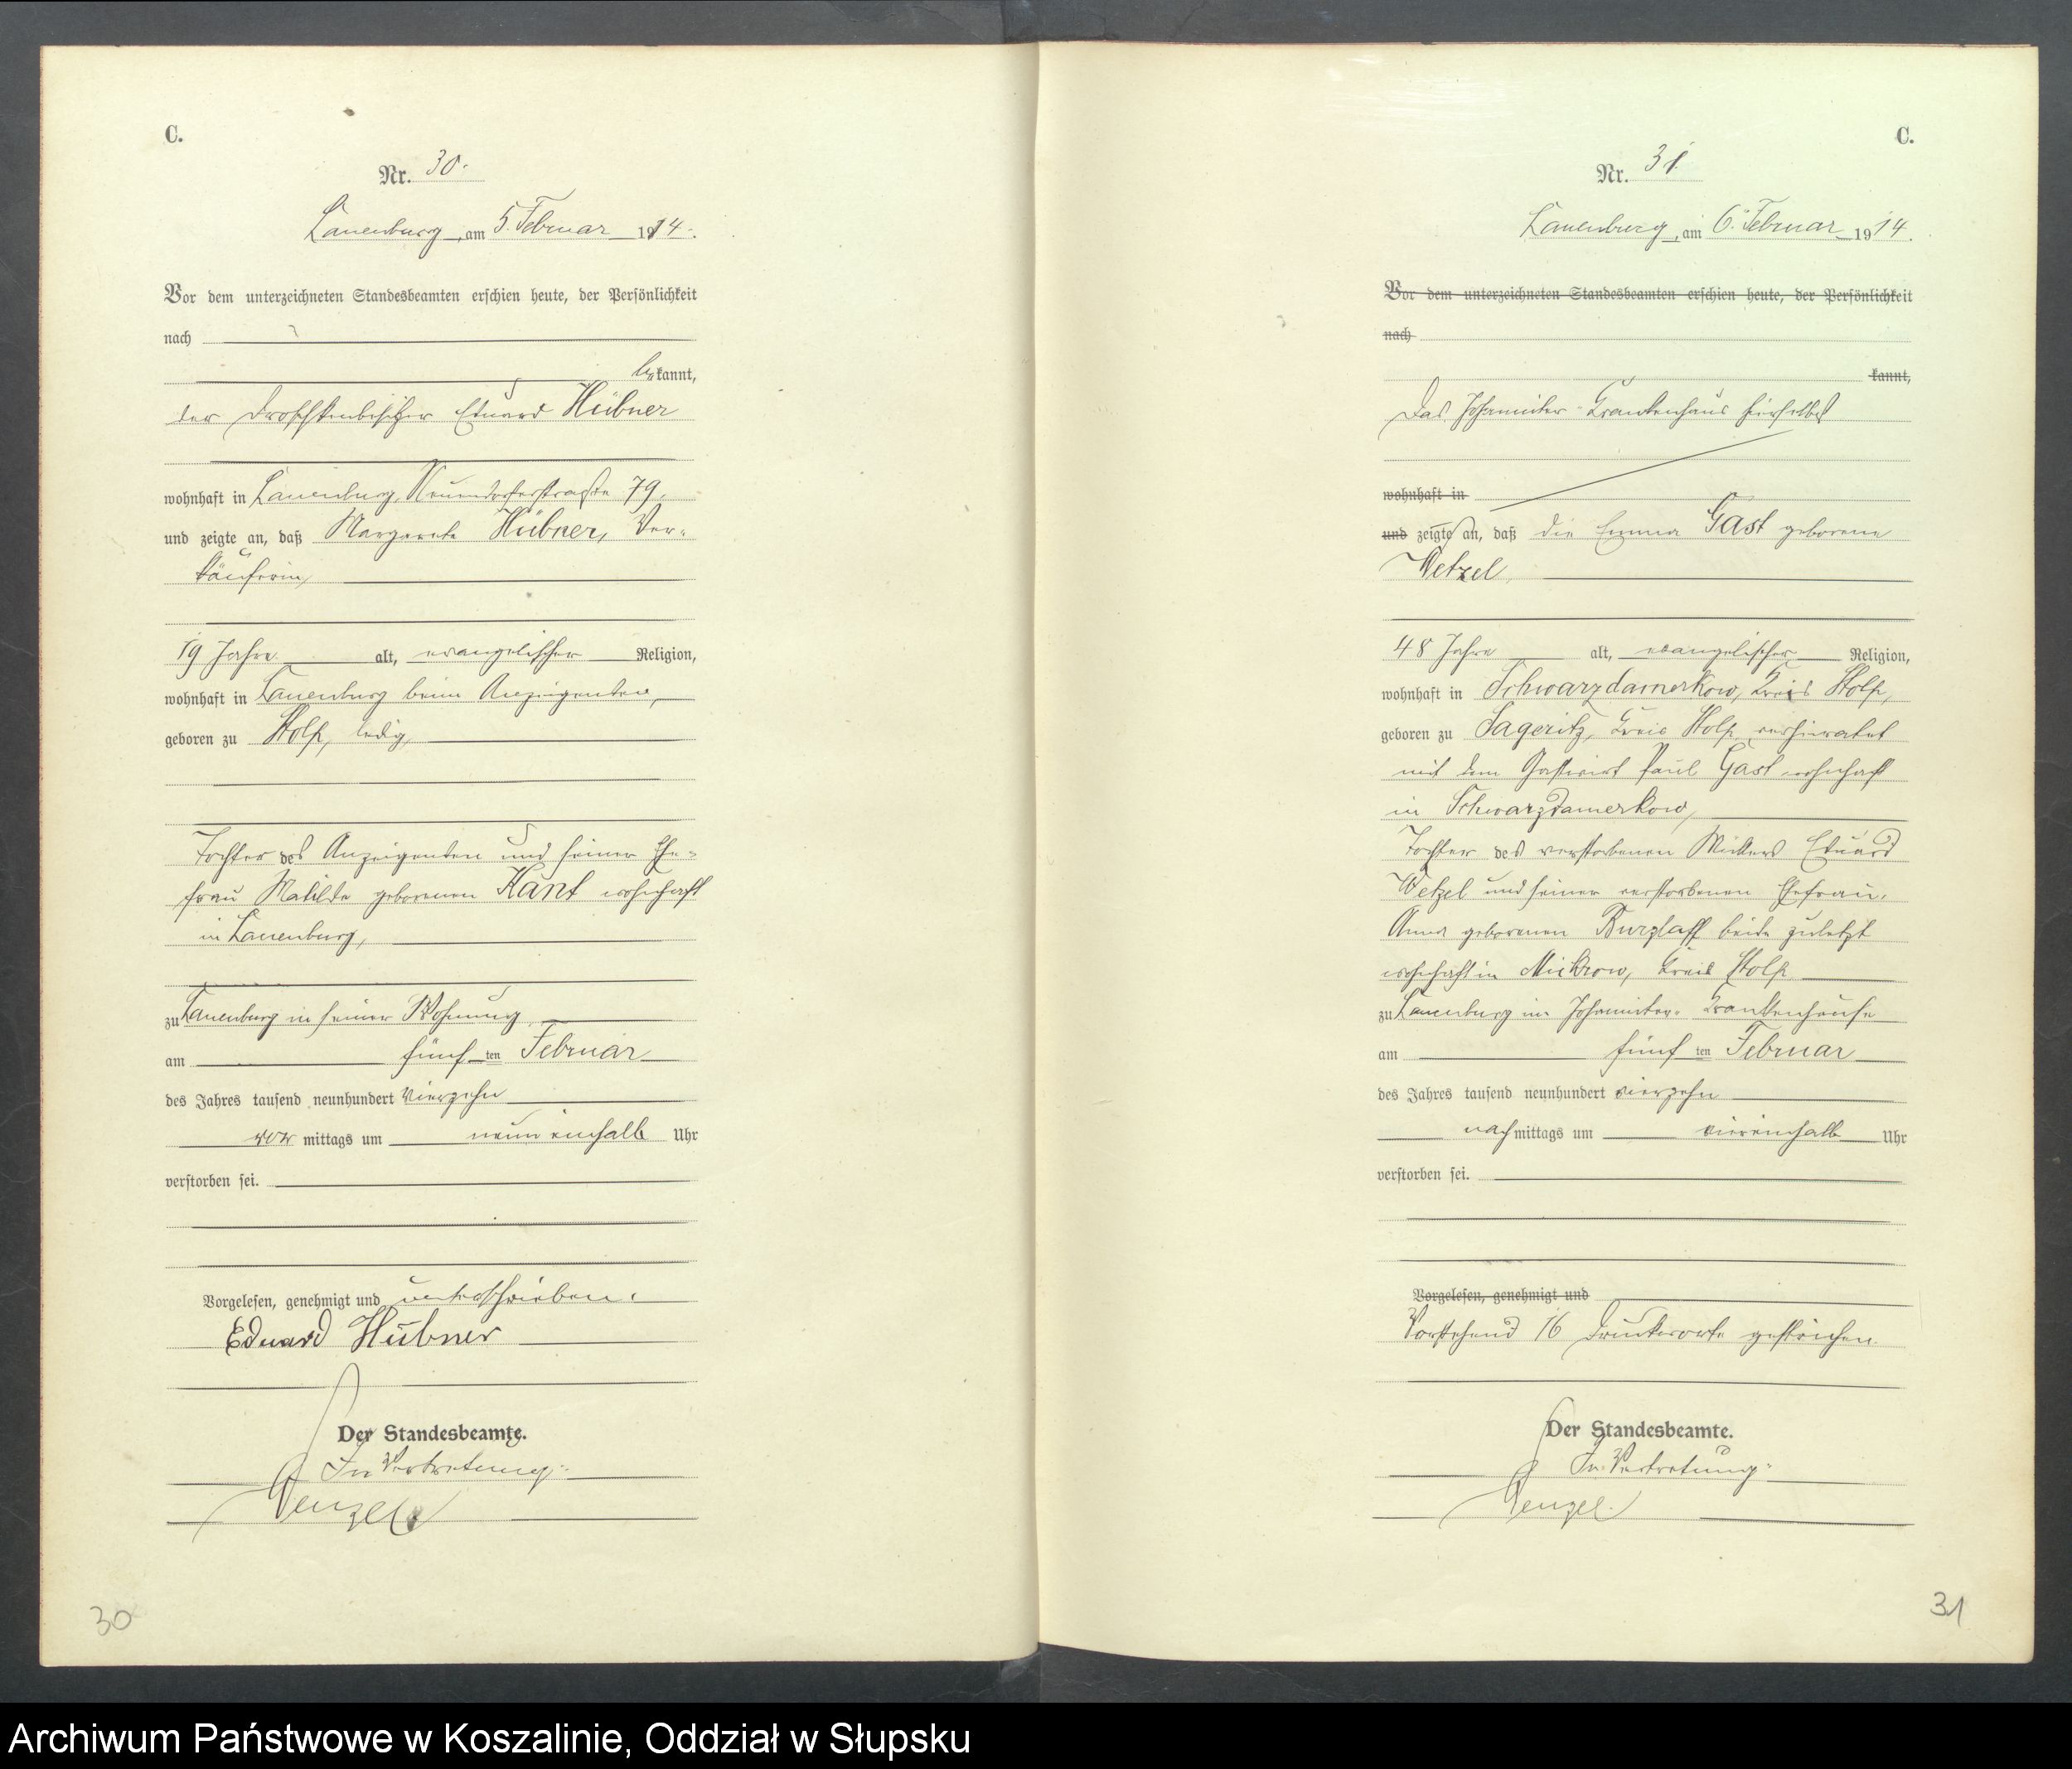 C.
Nr. 30.
Lauenburg, am 5. Februar 1914.
Vor dem unterzeichneten Standesbeamten erschien heute, der Persönlichkeit
nach
bekannt,
der Droschkenbesitzer Eduard Hübner
wohnhaft in Lauenburg, Neuendorferstraße 79,
und zeigte an, daß Margarete Hübner, Ver-
käuferin,
19 Jahre alt, evangelischer Religion,
wohnhaft in Lauenburg beim Anzeigenden,
geboren zu Stolp, ledig,
Tochter des Anzeigenden und seiner Ehe-
frau Matilde geborenen Kant wohnhaft
in Lauenburg,
zu Lauenburg in seiner Wohnung
am fünften Februar
des Jahres tausend neunhundert vierzehn
vormittags um neuneinhalb Uhr
verstorben sei.
Vorgelesen, genehmigt und unterschrieben.
Eduard Hübner
Der Standesbeamte.
In Vertretung:
Wenzel
30
C.
Nr. 31
Lauenburg, am 6. Februar 1914.
Vor dem unterzeichneten Standesbeamten erschien heute, der Persönlichkeit
nach
kannt,
Das Johanniter-Krankenhaus hierselbst
wohnhaft in
und zeigte an, daß die Emma Gast geborene
Wetzel,
48 Jahre alt, evangelischer Religion,
wohnhaft in Schwarzdamerkow, Kreis Stolp,
geboren zu Sageritz, Kreis Stolp, verheiratet
mit dem Gastwirt Paul Gast wohnhaft
in Schwarzdamerkow,
Tochter des verstorbenen Eduard
Wetzel und seiner verstorbenen Ehefrau
Anna geborenen Burzlaff beide zuletzt
wohnhaft in Mickrow, Kreis Stolp
zu Lauenburg im Johanniter-Krankenhause
am fünften Februar
des Jahres tausend neunhundert vierzehn
nachmittags um viereinhalb Uhr
verstorben sei.
Vorgelesen, genehmigt und
Vorstehend 16 Druckworte gestrichen.
Der Standesbeamte.
In Vertretung:
Wenzel.
31
Archiwum Państwowe w Koszalinie, Oddział w Słupsku